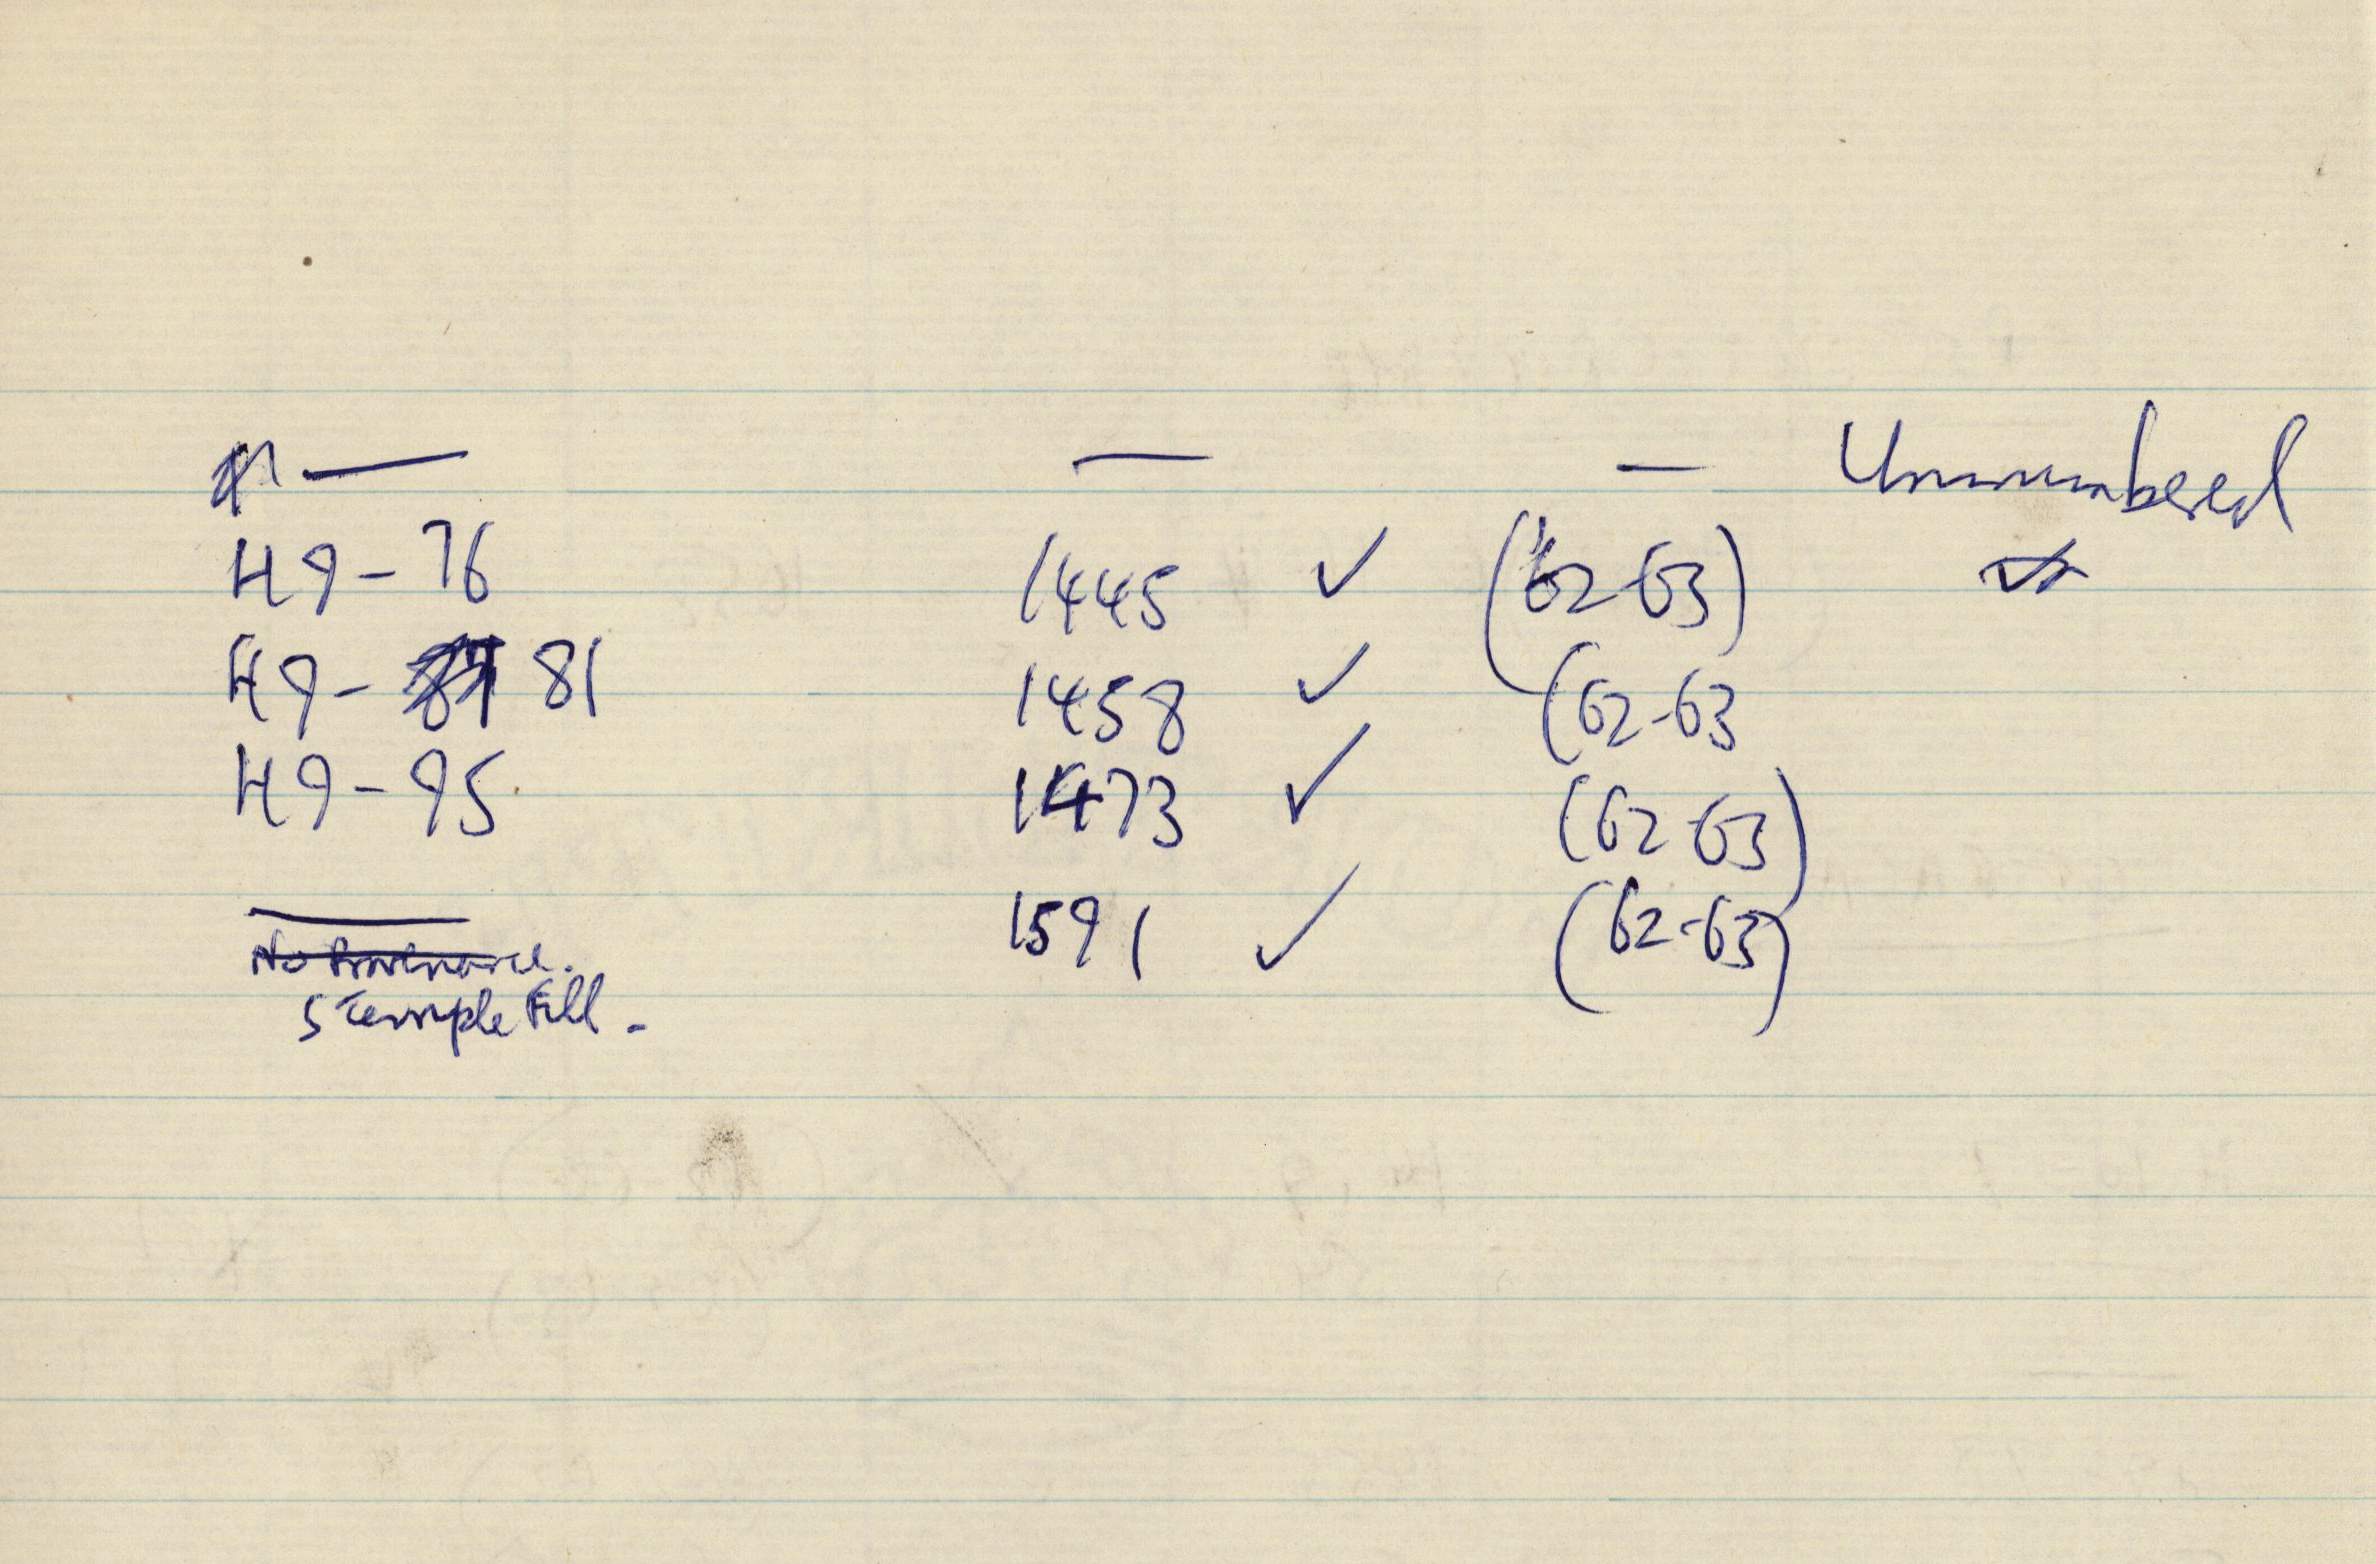 — — — Unnumbered
H9-76 1445 ✓ (62-63)
H9-81 1458 ✓ (62-63
H9-95 1473 ✓ (62-63)
— 1591 ✓ (62-63)
No Provenance.
S Temple Fill -